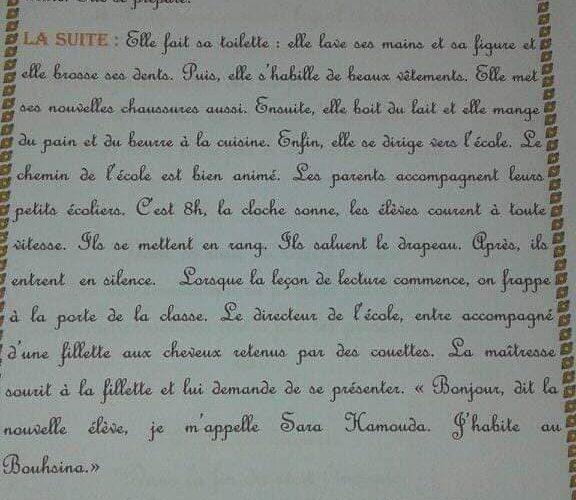 LA SUITE : Elle fait sa toilette : elle lave ses mains et sa figure et
elle brosse ses dents. Puis, elle s'habille de beaux vêtements. Elle met
ses nouvelles chaussures aussi. Ensuite, elle boit du lait et elle mange
du pain et du beurre à la cuisine. Enfin, elle se dirige vers l'école. Le
chemin de l'école est bien animé. Les parents accompagnent leurs
petits écoliers. C'est 8h, la cloche sonne, les élèves courent à toute
vitesse. Ils se mettent en rang. Ils saluent le drapeau. Après, ils
entrent en silence. Lorsque la leçon de lecture commence, on frappe
à la porte de la classe. Le directeur de l'école, entre accompagné
d'une fillette aux cheveux retenus par des couettes. La maîtresse
sourit à la fillette et lui demande de se présenter. « Bonjour, dit la
nouvelle élève, je m'appelle Sara Hamouda. J'habite au
Bouhsina.»